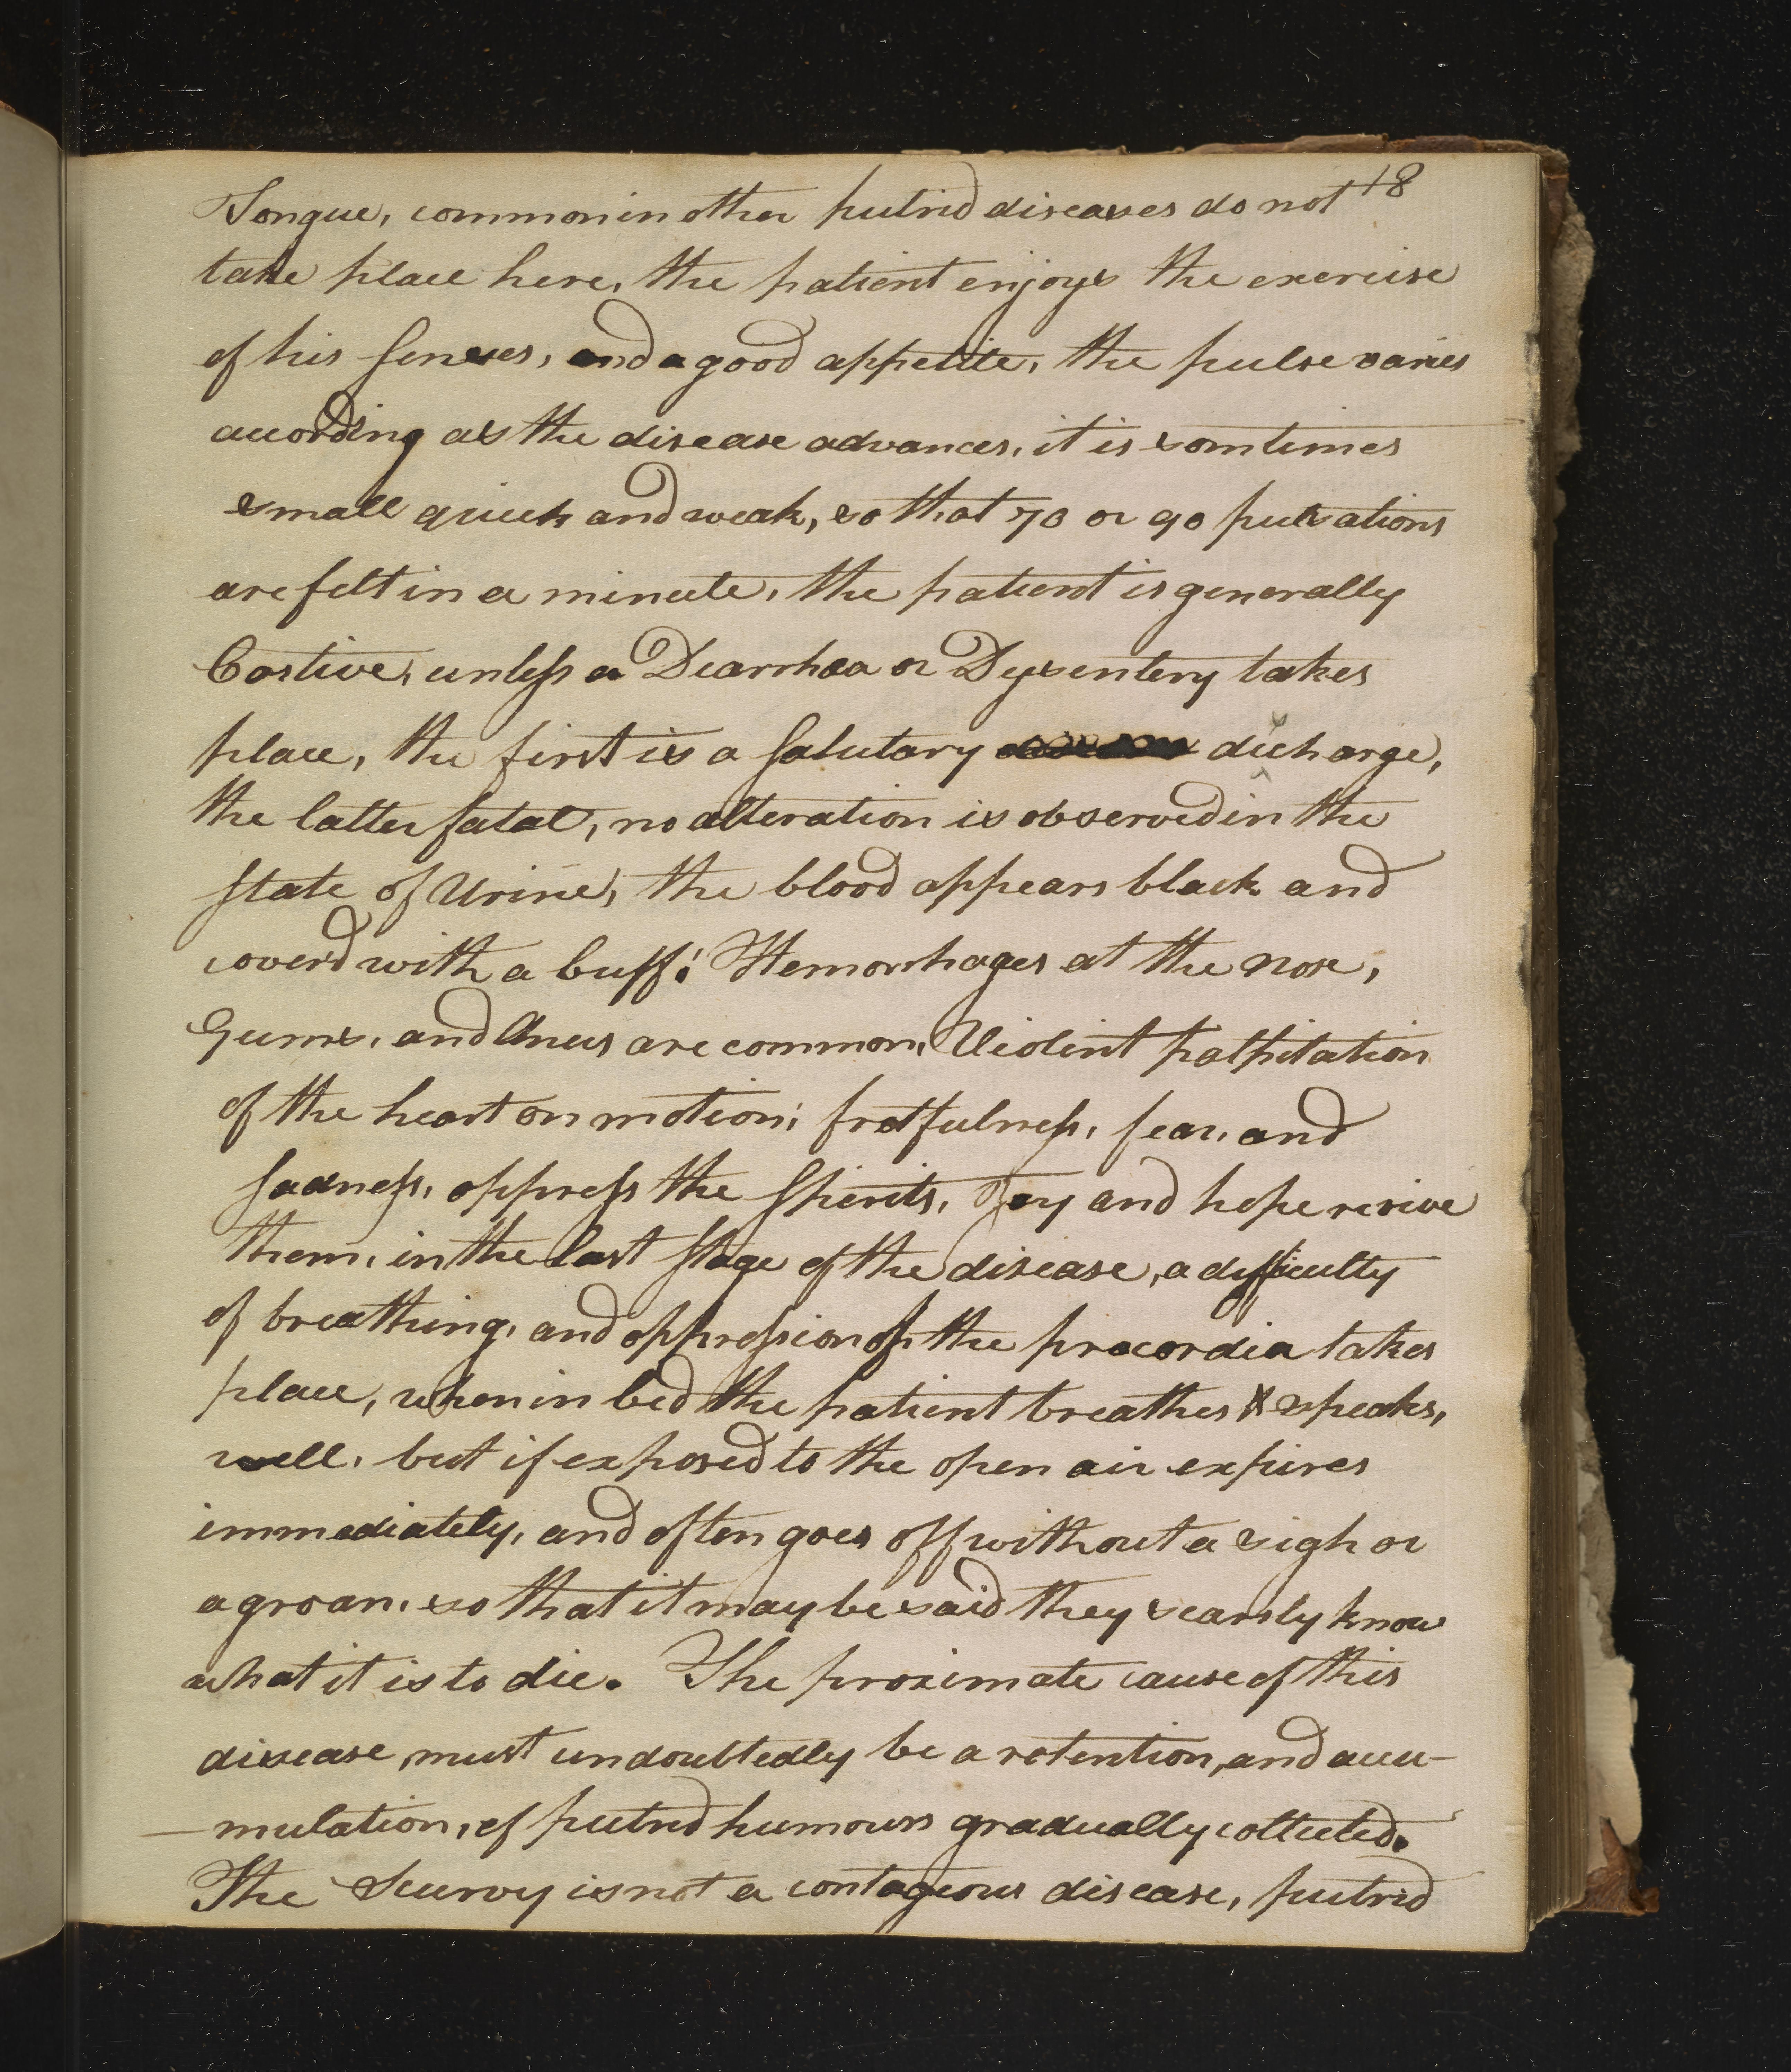 18
Tongue, common in other putrid diseases do not
take place here, the patient enjoys the exercise
of his senses, and a good appetite, the pulse varies
according as the disease advances, it is somtimes
small quick and weak, so that 70 or 90 pulsations
are felt in a minute, the patient is generally
Costive, unless a Diarrhœa or Dysentery takes
place, the first is a salutary discharge,
the latter fatal, no alteration is observed in the
state of Urine, the blood appears black and
coverd with a buff: Hemorrhages at the nose,
Gums, and Anus are common, Violent palpitation
of the heart on motion; fretfulness, fear, and
sadness, oppress the Spirits, Joy and hope revive
them, in the last stage of the disease, a difficulty
of breathing, and oppression of the præcordia takes
place, when in bed the patient breathes & speaks,
well, but if exposed to the open air expires
immediately, and often goes off without a sigh or
a groan, so that it may be said they scarsly know
what it is to die. The proximate cause of this
disease, must undoubtedly be a retention, and accu-
-mulation, of putrid humours gradually collected.
The Scurvy is not a contageous disease, putrid